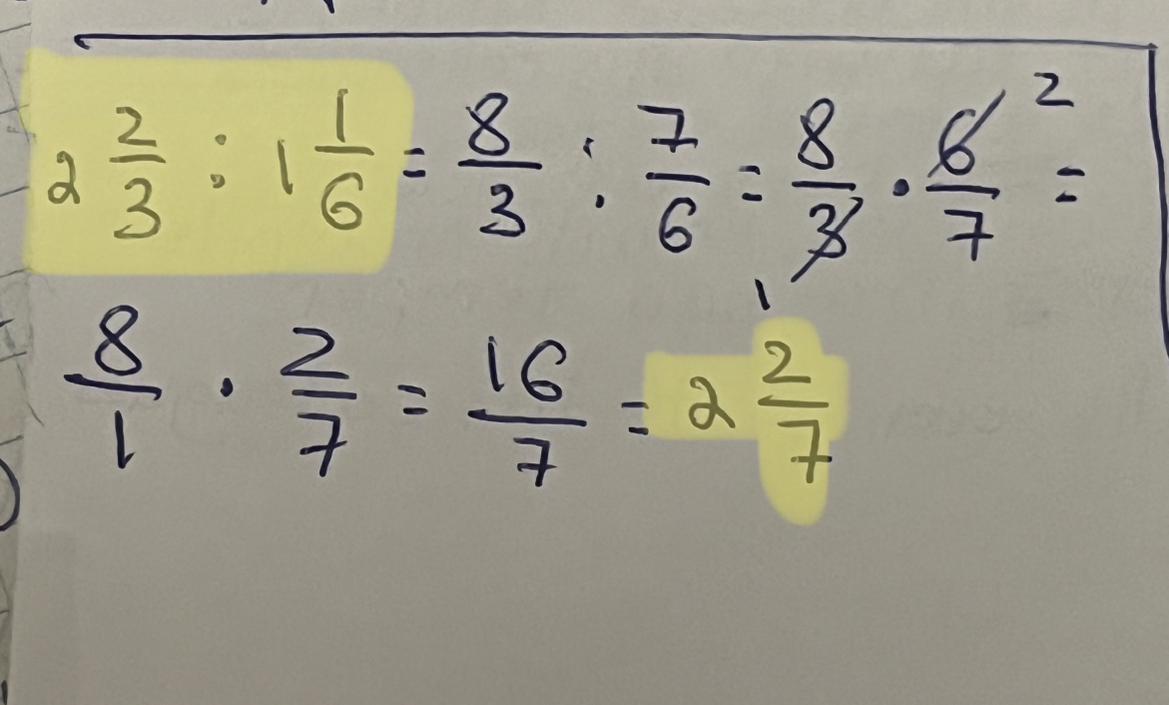 2 2/3 : 1 1/6 = 8/3 : 7/6 = 8/3 1 · 6/7 2 =
8/1 · 2/7 = 16/7 = 2 2/7